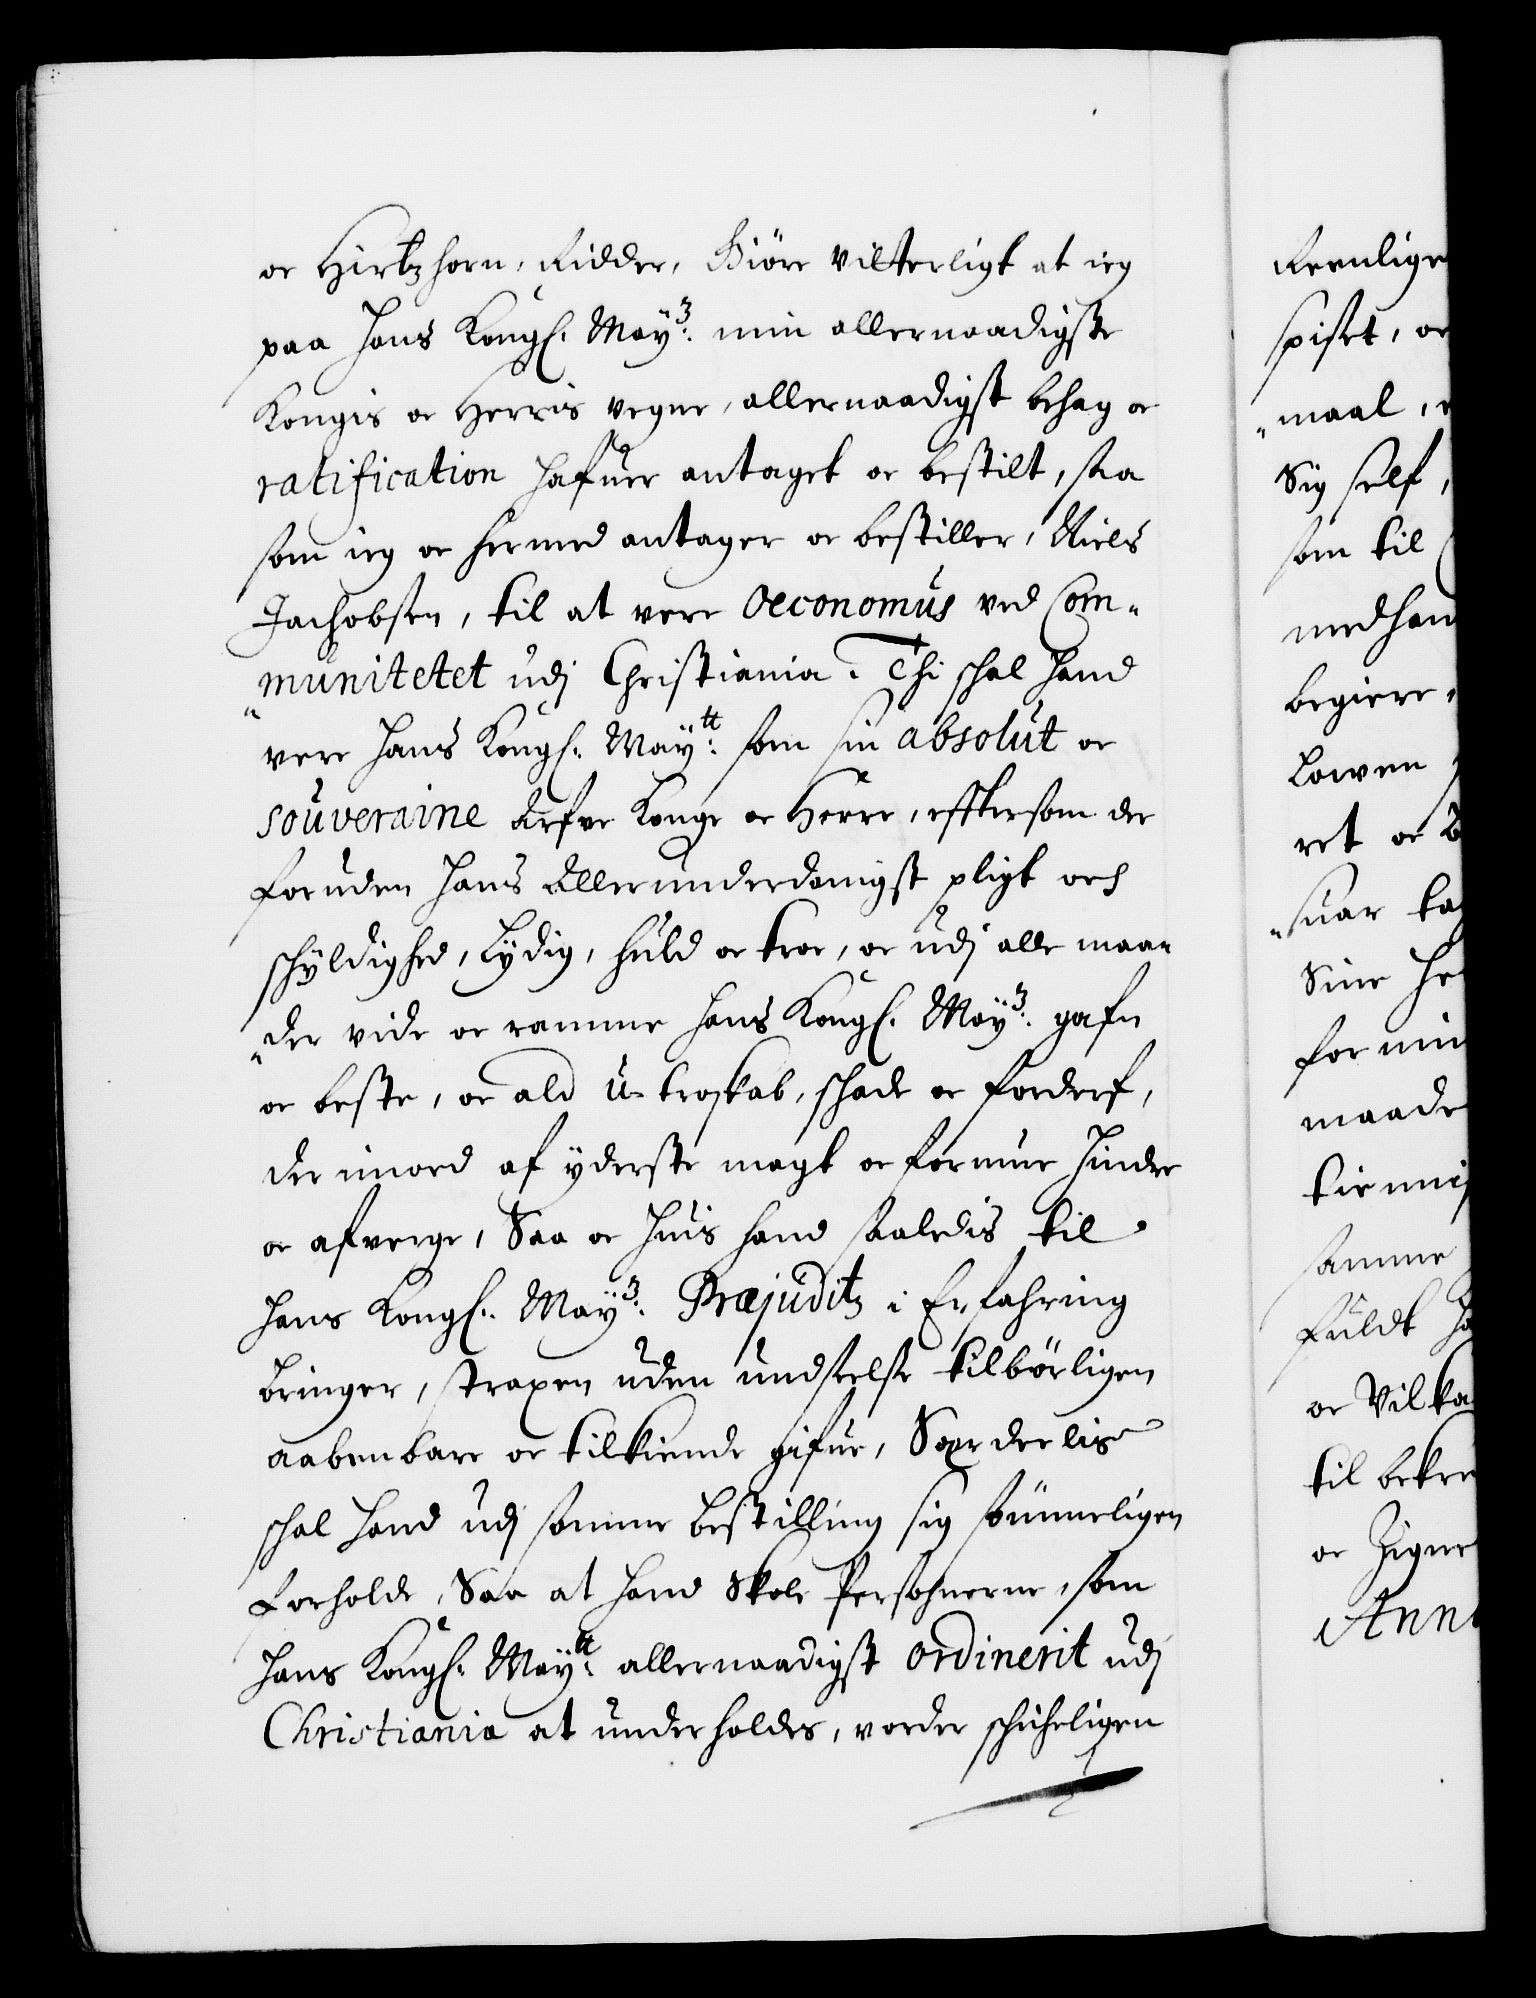 oc Hirtzhorn, Ridder, Giöre Vitterligt at ieg
paa Hans Kongl. May3: min allernaadigste
Kongis oc Herris vegne, allernaadigst behag oc
ratification hafuer antaget oc bestilt, saa
som ieg oc hermed antager oc bestiller, Niels
Jachobsen, til at vere Oeconomus ved Com-
munitetet udj Christiania. Thi schal hand
vere Hans Kongl. Maytt: som sin absolut oc
souveraine Arfve Konge oc Herre, effttersom der
foruden Hans Allerunderdanigst pligt och
schyldighed, Lydig, huld oc troe, oc udj alle maa-
der vide oc ramme Hans Kongl. May3: gafn
oc beste, oc ald U-troskab, schade oc forderf,
der imoed af yderste magt oc formue hindre
oc afverge, Saa oc huis hand saaledis til
Hans Kongl. May3: Præjuditz i Erfahring
bringer, straxen uden undseelse tilbörligen
aabenbare oc tilkiende gifue, Særdeelis
schal hand udj samme bestilling sig sömmeligen
forholde, Saa at hand Skole Persohnerne, som
Hans Kongl. Maytt: allernaadigst ordinerit udj
Christiania at underholdes, vorder schicheligen
Reenlige
spiset, oc
maal,
Sig self,
som til
medhan
begiere,
Lowen
ret oc
suar ta
Sine he
for min
maade
tie mi
samme
fuldt
oc Vilka
til bekre
oc Zigne
Ann